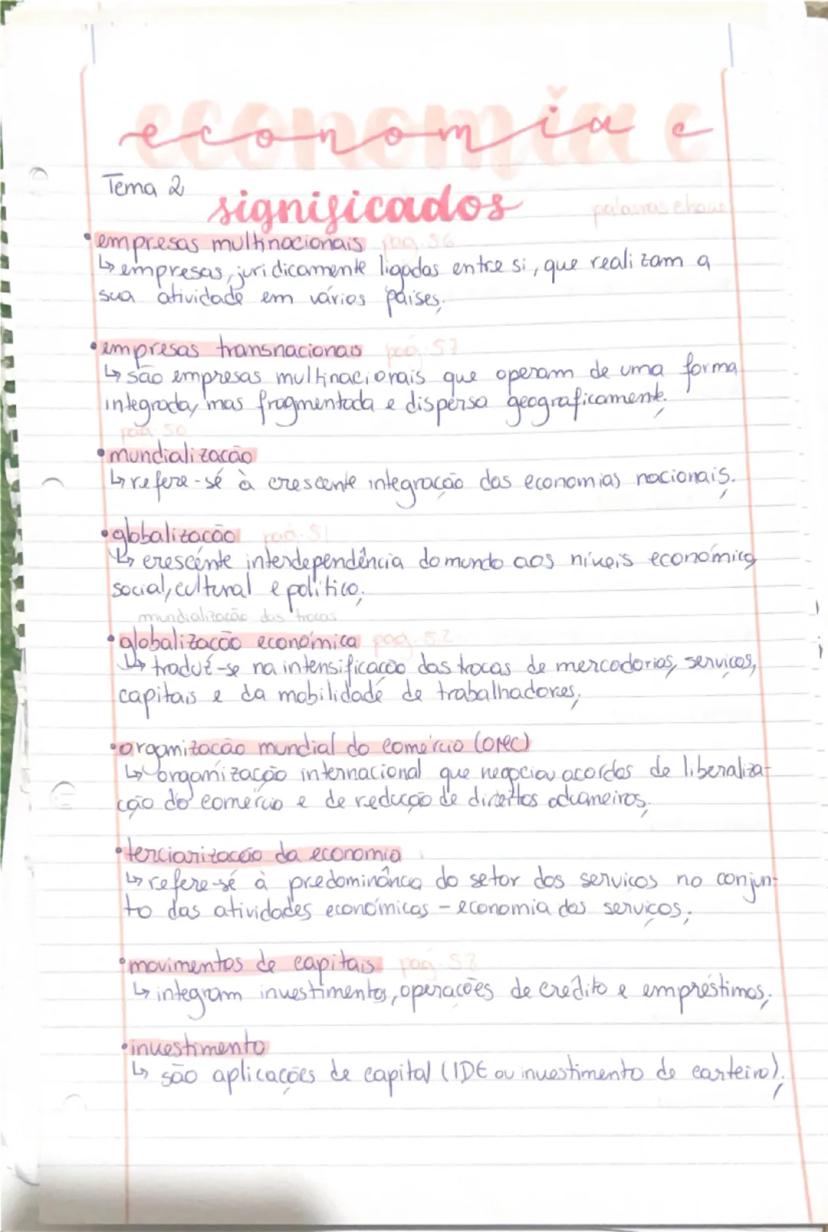 economia c
Tema 2
significados
palavras chave
•empresas multinacionais pág. 56
↳empresas, juridicamente ligadas entre si, que realizam a
sua atividade em vários países;
•empresas transnacionais pág. 57
↳são empresas multinacionais que operam de uma forma
integrada, mas fragmentada e dispersa geograficamente;
pág. 50
•mundialização
↳refere-se à crescente integração das economias nacionais.
•globalização pág. 51
↳ crescente interdependência do mundo aos níveis económico,
social, cultural e político;
mundialização das trocas
•globalização económica pág. 52
↳ traduz-se na intensificação das trocas de mercadorias, serviços,
capitais e da mobilidade de trabalhadores;
•organização mundial do comércio (OMC)
↳organização internacional que negociou acordos de liberaliza-
ção do comércio e de redução de direitos aduaneiros;
•terciarização da economia
↳refere-se à predominância do setor dos serviços no conjun-
to das atividades económicas – economia dos serviços;
•movimentos de capitais pág. 53
↳ integram investimentos, operações de crédito e empréstimos;
•investimento
↳ são aplicações de capital (IDE ou investimento de carteira);